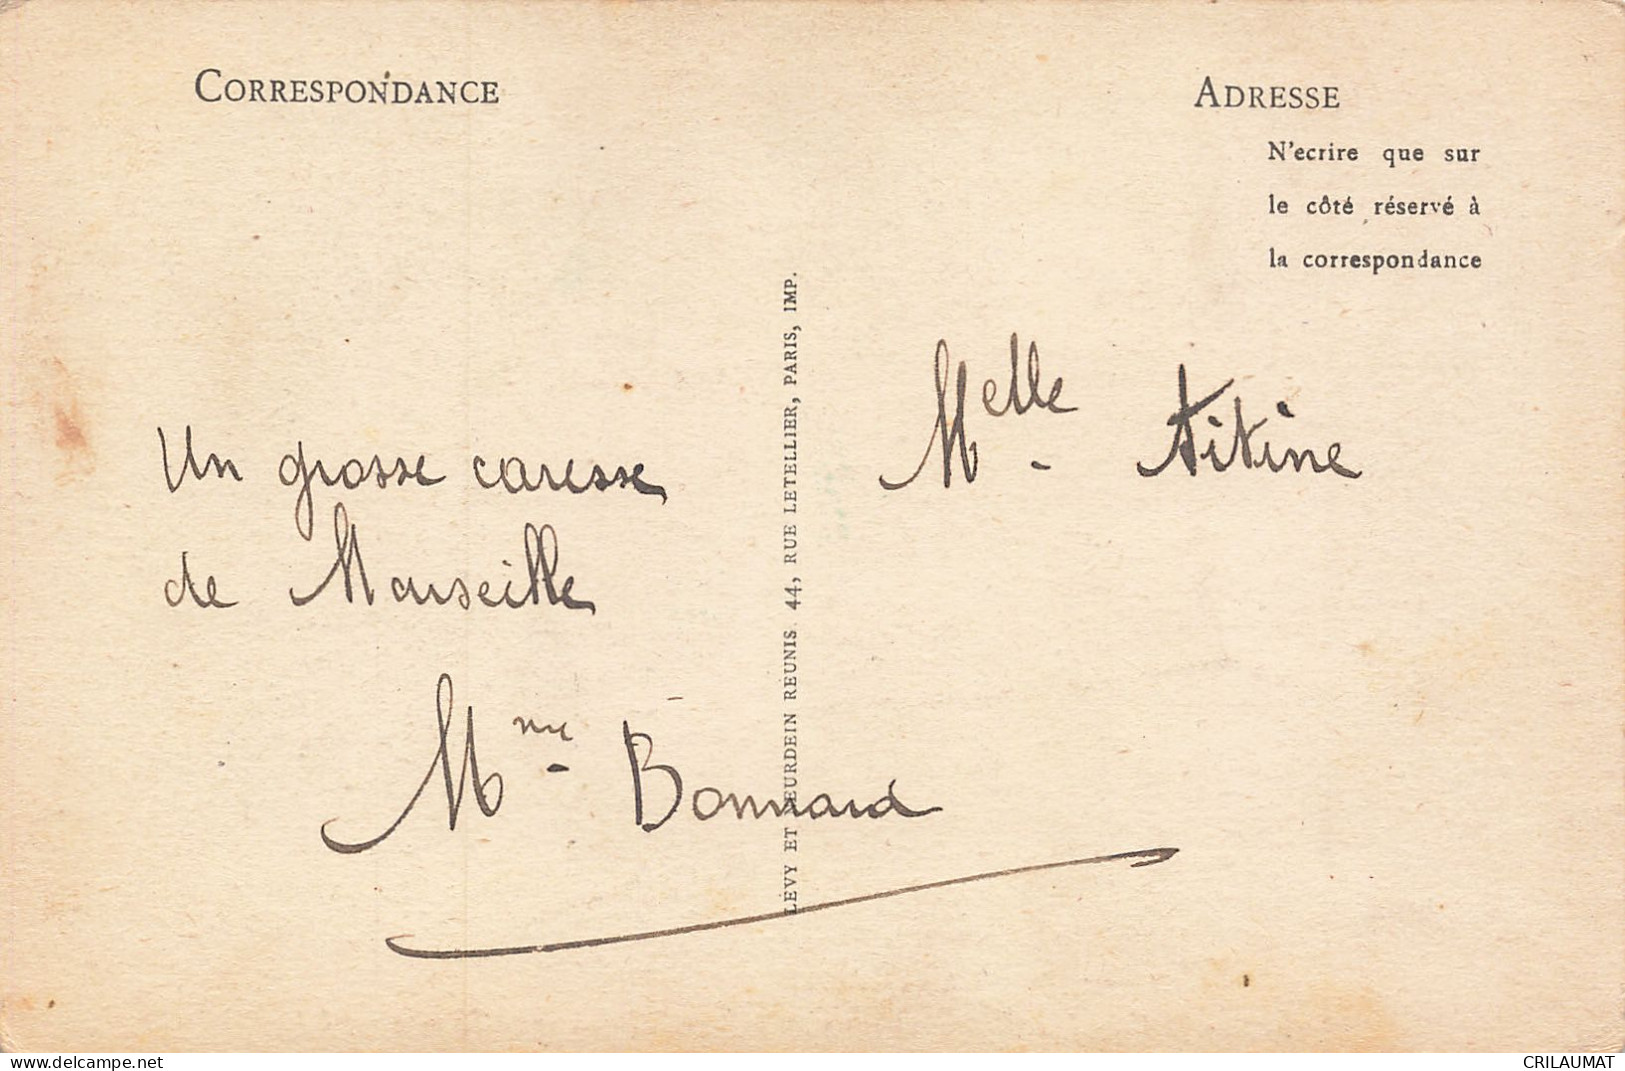 CORRESPONDANCE
ADRESSE
N'ecrire que sur
le côté réservé à
la correspondance
Un grosse caresse
de Marseille
Mme Bonnard
LÉVY ET NEURDEIN REUNIS. 44, RUE LETELLIER, PARIS, IMP.
Melle Titine
www.delcampe.net
CRILAUMAT